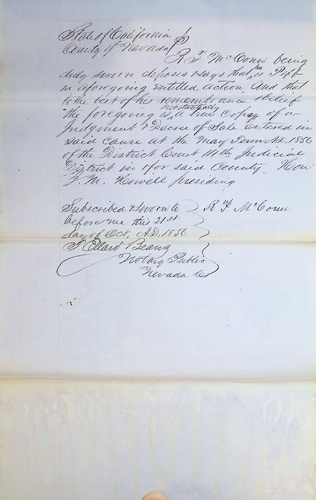 State of California }
County of Nevada } S
R. F. McConn being
duly sworn deposes & says that he is Plff
in aforegoing entitled action, And that
to the best of his remembrance & belief
the foregoing is substantially a true Copy of a
Judgment & Decree of Sale entered in
said cause at the May Term A.D. 1856
of the District Court 14th Judicial
District in & for said County. Hon
Howell presiding
Subscribed & sworn to } R F McConn
before me this 21st
day of Oct. A.D. 1856
Notary Public
Nevada Co